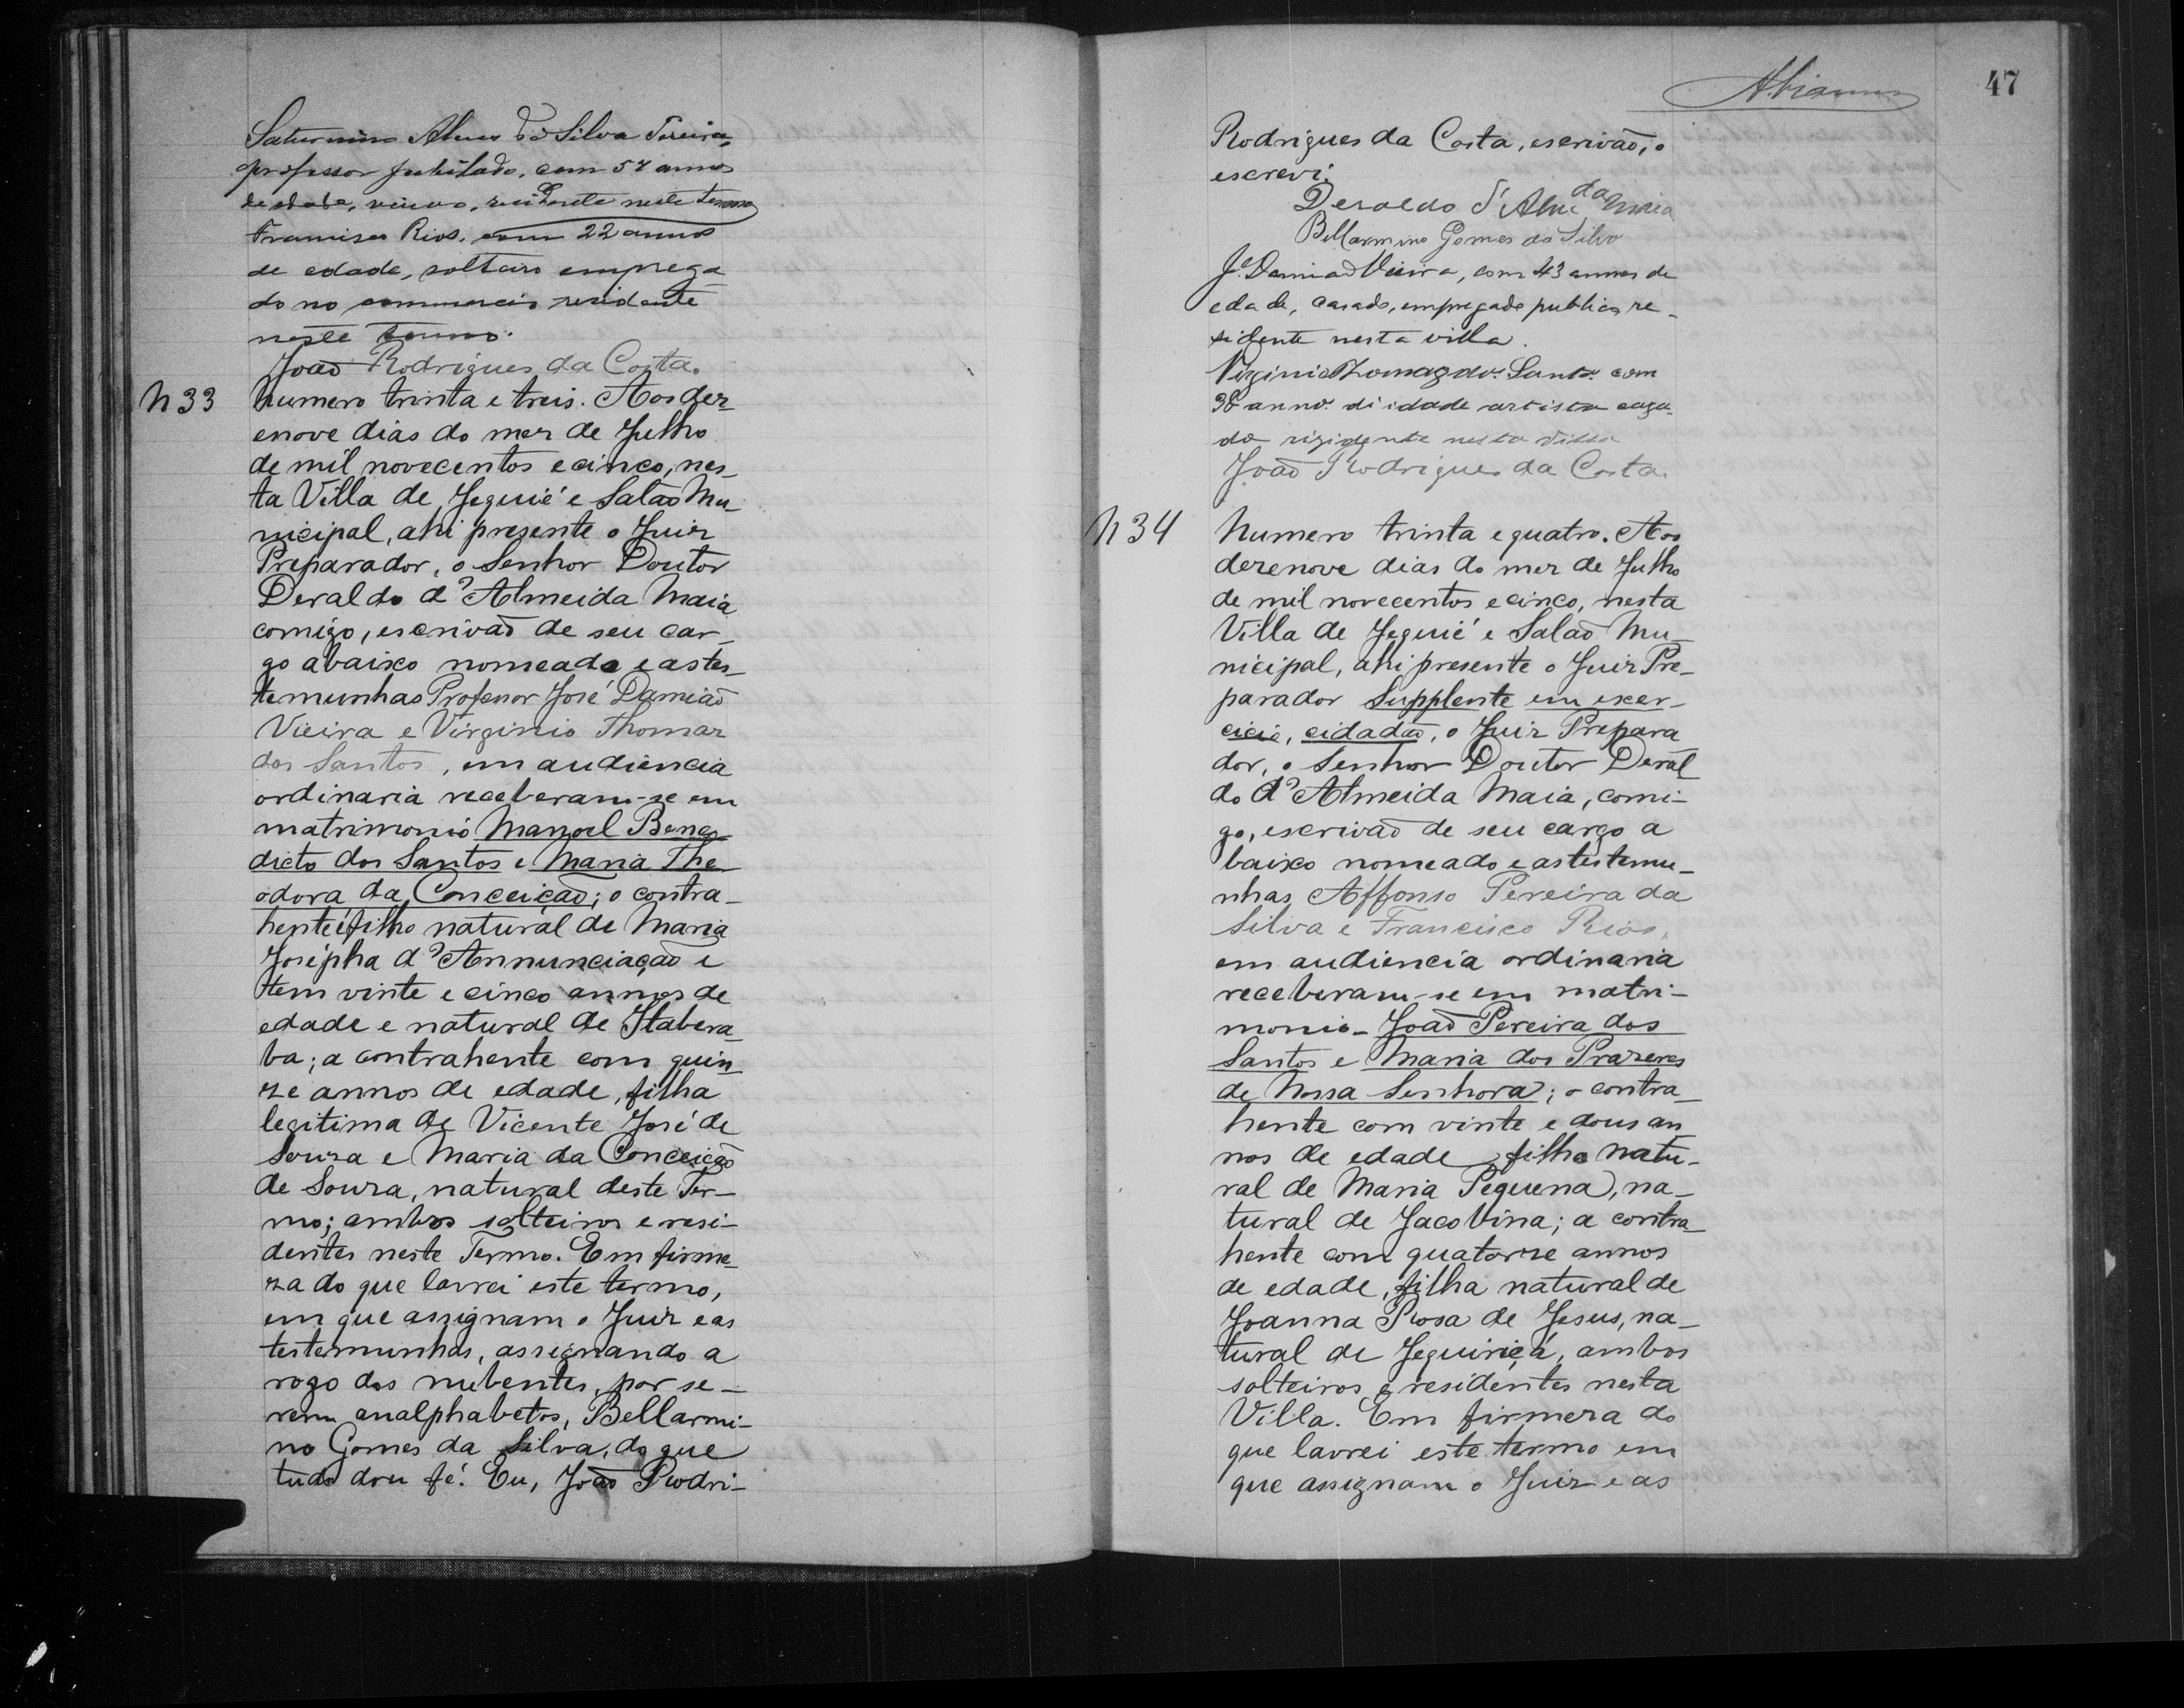 Saturnino Alves da Silva Pereira,
professor jubilado, com 57 annos
de edade, viuvo, residente neste termo
Francisco Rios, com 22 annos
de edade, solteiro emprega
do no commercio residente
neste termo.
João Rodrigues da Costa.
N 33
Numero trinta e treis. Aos dez
enove dias do mez de Julho
de mil novecentos e cinco, nes_
ta Villa de Jequié e Salão Mu_
nicipal, ahi presente o Juiz
Preparador, o Senhor Doutor
Deraldo d'Almeida Maia
comigo, escrivão de seu car_
go abaixo nomeado e as tes_
temunhas Professor José Damião
Vieira e Virginio Thomaz
dos Santos, em audiencia
ordinaria receberam-se em
matrimonio Manoel Bene
dicto dos Santos e Maria The
odora da Conceição; o contra_
hente é filho natural de Maria
Josépha d'Annunciação e
tem vinte e cinco annos de
edade e natural de Itabera_
ba; a contrahente com quin_
ze annos de edade, filha
legitima de Vicente José de
Souza e Maria da Conceição
de Souza, natural deste Ter_
mo; ambos solteiros e resi_
dentes neste Termo. Em firme_
za do que lavrei este termo,
em que assignam o Juiz e as
testemunhas, assignando a
rogo dos nubentes, por se_
rem analphabetos, Bellarmi_
no Gomes da Silva, do que
tudo dou fé. Eu, João Rodri_
47
Rodrigues da Costa, escrivão, o
escrevi.
Deraldo d'Almeida Maia
Bellarmino Gomes da Silva
Jé. Damião Vieira, com 43 annos de
edade, casado, empregado publico, re_
sidente nesta villa.
Virginio Thomaz dos Santos com
38 annos di idade artista caza
do rizidente nesta Villa
João Rodrigues da Costa.
N 34
Numero trinta e quatro. Aos
dezenove dias do mez de Julho
de mil novecentos e cinco, nesta
Villa de Jequié e Salão Mu_
nicipal, ahi presente o Juiz Pre_
parador Supplente em exer_
cicio, cidadão, o Juiz Prepara
dor, o Senhor Doutor Deral
do d'Almeida Maia, comi_
go, escrivão de seu cargo a
baixo nomeado e as testemu_
nhas Affonso Pereira da
Silva e Francisco Rios,
em audiencia ordinaria
receberam-se em matri_
monio_ João Pereira dos
Santos e Maria dos Prazeres
de Nossa Senhora; o contra_
hente com vinte e dous an
nos de edade, filho natu_
ral de Maria Pequena, na_
tural de Jacobina; a contra_
hente com quatorze annos
de edade, filha natural de
Joanna Rosa de Jesus, na_
tural de Jequiriçá, ambos
solteiros e residentes nesta
Villa. Em firmeza do
que lavrei este termo em
que assignam o Juiz e as